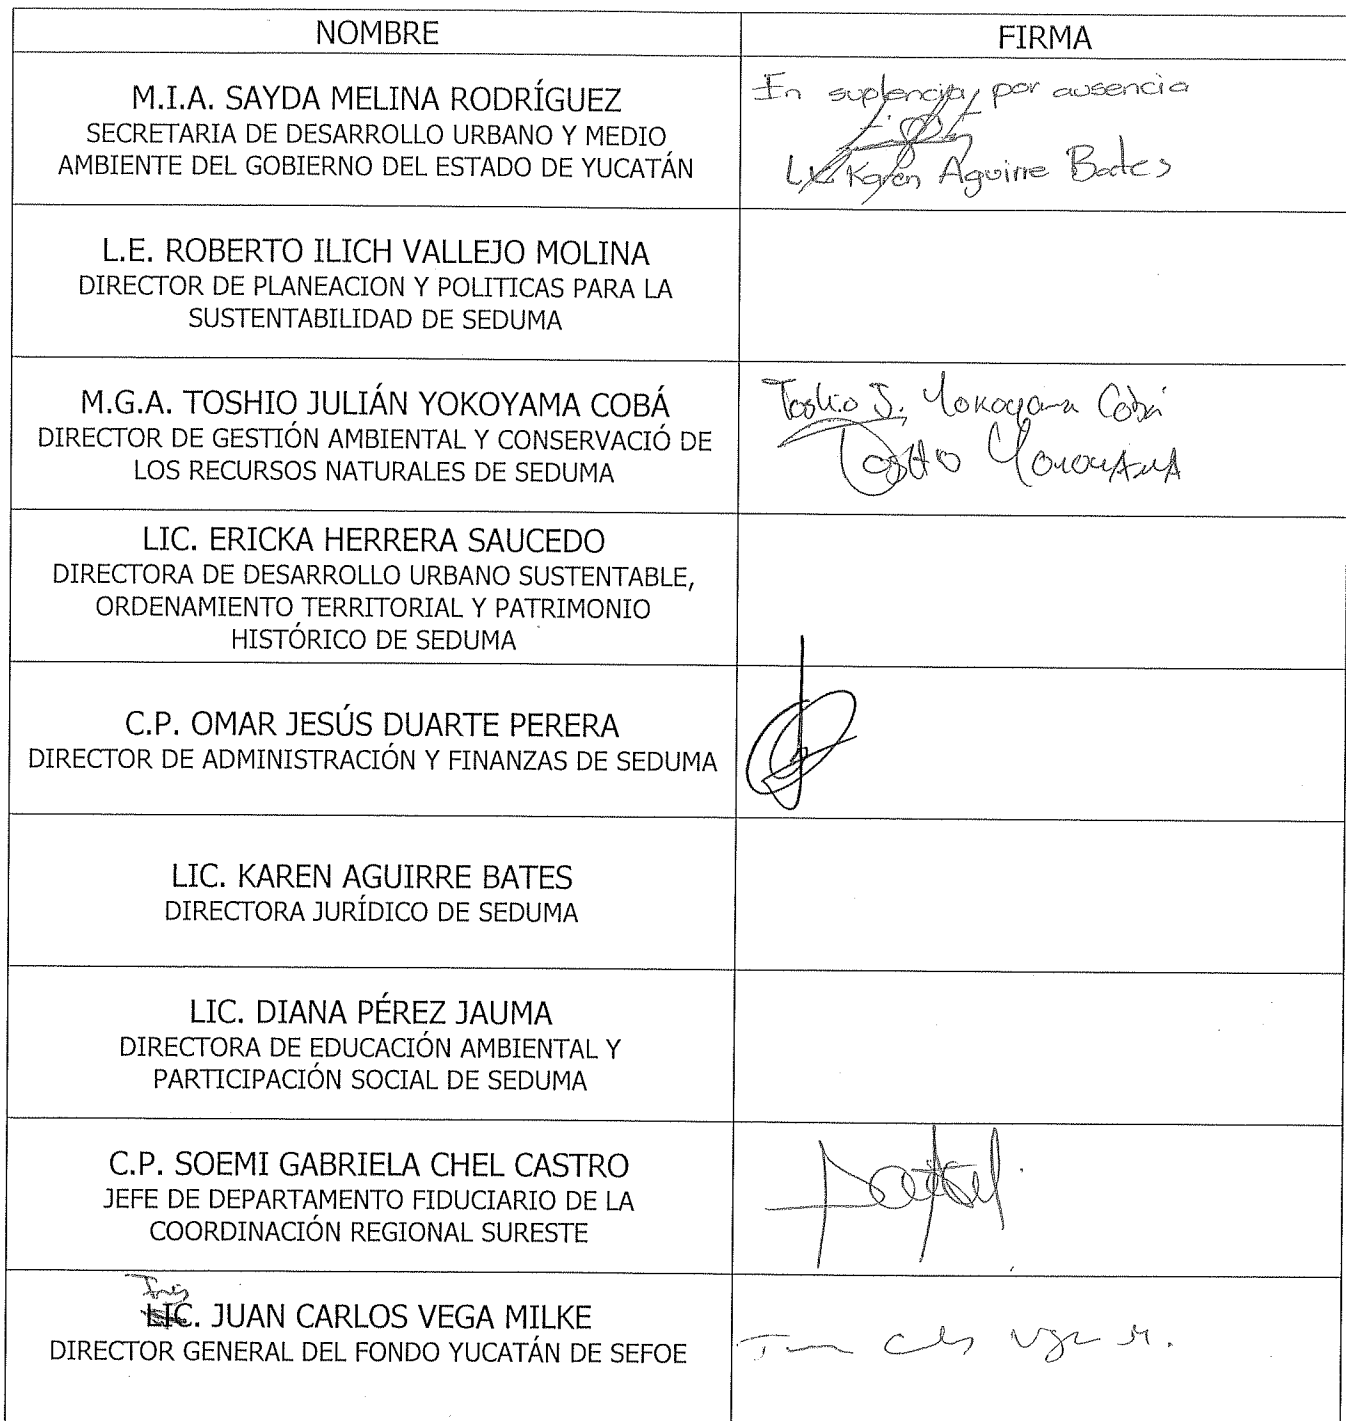 NOMBRE
FIRMA
M.I.A. SAYDA MELINA RODRÍGUEZ
SECRETARIA DE DESARROLLO URBANO Y MEDIO
AMBIENTE DEL GOBIERNO DEL ESTADO DE YUCATÁN
En suplencia por ausencia
Lic. Karen Aguirre Bates
L.E. ROBERTO ILICH VALLEJO MOLINA
DIRECTOR DE PLANEACION Y POLITICAS PARA LA
SUSTENTABILIDAD DE SEDUMA
M.G.A. TOSHIO JULIÁN YOKOYAMA COBÁ
DIRECTOR DE GESTIÓN AMBIENTAL Y CONSERVACIÓ DE
LOS RECURSOS NATURALES DE SEDUMA
Toshio J. Yokoyama Cobá
TOSHIO YOKOYAMA
LIC. ERICKA HERRERA SAUCEDO
DIRECTORA DE DESARROLLO URBANO SUSTENTABLE,
ORDENAMIENTO TERRITORIAL Y PATRIMONIO
HISTÓRICO DE SEDUMA
C.P. OMAR JESÚS DUARTE PERERA
DIRECTOR DE ADMINISTRACIÓN Y FINANZAS DE SEDUMA
LIC. KAREN AGUIRRE BATES
DIRECTORA JURÍDICO DE SEDUMA
LIC. DIANA PÉREZ JAUMA
DIRECTORA DE EDUCACIÓN AMBIENTAL Y
PARTICIPACIÓN SOCIAL DE SEDUMA
C.P. SOEMI GABRIELA CHEL CASTRO
JEFE DE DEPARTAMENTO FIDUCIARIO DE LA
COORDINACIÓN REGIONAL SURESTE
LIC. JUAN CARLOS VEGA MILKE
DIRECTOR GENERAL DEL FONDO YUCATÁN DE SEFOE
Juan Carlos Vega M.